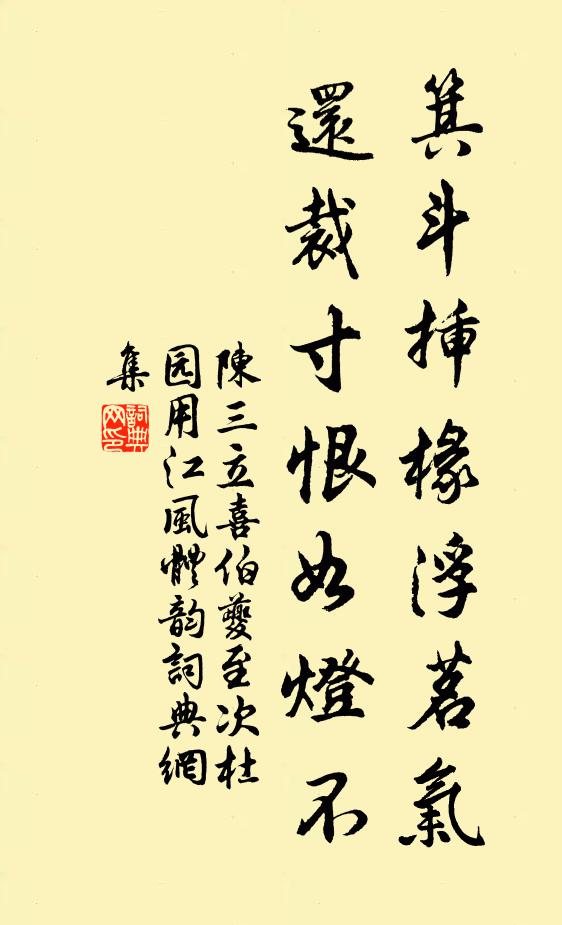 箕斗揷椽浮茗氣
還裁寸恨如燈不
陳三立喜伯夔至次杜
园用江風體韵詞典網
集
詞典网印